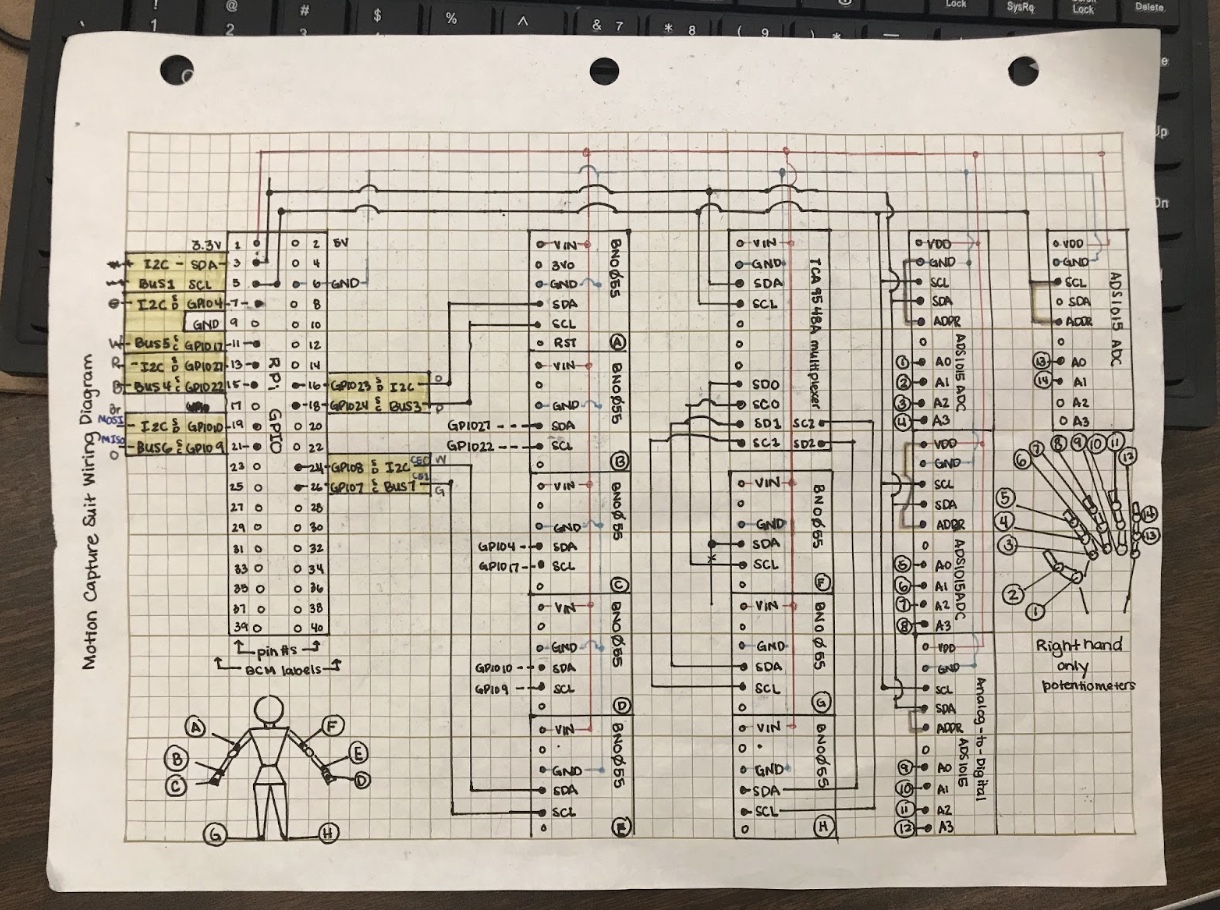 Motion Capture Suit Wiring Diagram
3.3V 1 2 5V
I2C - SDA 3 4
BUS1 SCL 5 6 GND
I2C S D GPIO4 7 8
GND 9 10
W BUS5 S C GPIO17 11 12
R I2C S D GPIO27 13 14
B BUS4 S C GPIO22 15 16 GPIO23 S D I2C O
17 18 GPIO24 S C BUS3 P
MOSI I2C S D GPIO10 19 20
MISO BUS6 S C GPIO9 21 22
O
23 24 GPIO8 S D I2C CE0 W
25 26 GPIO7 S C BUS7 CE1 G
27 28
29 30
31 32
33 34
35 36
37 38
39 40
RPi GPIO
pin #s
BCM labels
A
B
C
F
E
D
G
H
VIN
3VO
GND
SDA
SCL
RST
BNO055
A
VIN
GND
GPIO27 SDA
GPIO22 SCL
BNO055
B
VIN
GND
GPIO4 SDA
GPIO17 SCL
BNO055
C
VIN
GND
GPIO10 SDA
GPIO9 SCL
BNO055
D
VIN
GND
SDA
SCL
BNO055
E
VIN
GND
SDA
SCL
SD0
SC0
SD1 SC2
SC1 SD2
TCA 9548A multiplexer
VIN
GND
SDA
SCL
BNO055
F
VIN
GND
SDA
SCL
BNO055
G
VIN
GND
SDA
SCL
BNO055
H
VDD
GND
SCL
SDA
ADDR
1 A0
2 A1
3 A2
4 A3
ADS1015 ADC
VDD
GND
SCL
SDA
ADDR
5 A0
6 A1
7 A2
8 A3
ADS1015 ADC
VDD
GND
SCL
SDA
ADDR
9 A0
10 A1
11 A2
12 A3
Analog-to-Digital
ADS1015
VDD
GND
SCL
SDA
ADDR
13 A0
14 A1
A2
A3
ADS1015 ADC
7 8 9 10 11
6 12
5
4 14
3 13
2
1
Right hand
only
potentiometers
! @ # $ % ^ & 7 * 8 ( 9 ) * —
1 2 3
Lock SysRq Lock Delete